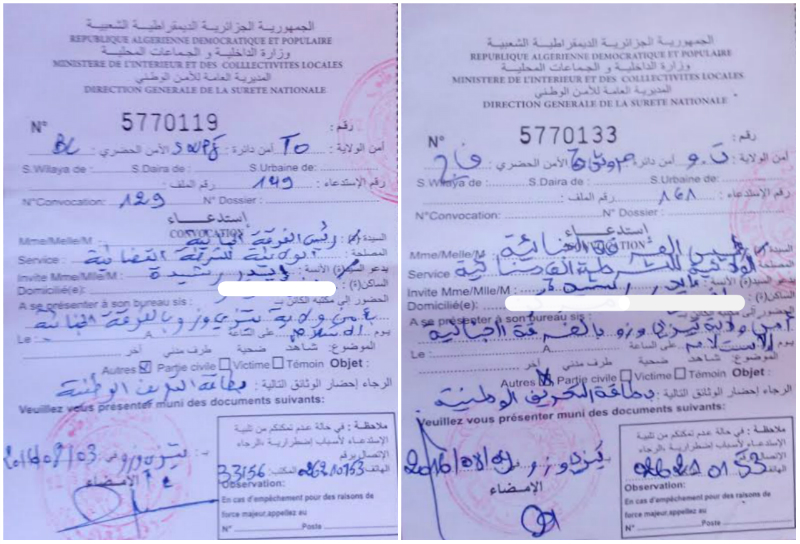 الجمهورية الجزائرية الديمقراطية الشعبية
REPUBLIQUE ALGERIENNE DEMOCRATIQUE ET POPULAIRE
وزارة الداخلية و الجماعات المحلية
MINISTERE DE L'INTERIEUR ET DES COLLLECTIVITES LOCALES
المديرية العامة للأمن الوطني
DIRECTION GENERALE DE LA SURETE NATIONALE
N° 5770119 رقم :
أمن الولاية : TO أمن دائرة : الأمن الحضري :
S.Wilaya de : S.Daira de : S.Urbaine de:
رقم الإستدعاء : 149 رقم الملف :
N°Convocation: 129 N° Dossier :
إستدعــاء
CONVOCATION
Mme/Melle/M : رئيس الفرقة الجنائية السيد(ة)
Service : الولائية للشرطة القضائية المصلحة :
Invite Mme/Mlle/M : رشيدة يدعو السيد(ة) الآنسة:
Domicilié(e): الساكن(ة) :
A se présenter à son bureau sis : الحضور إلى مكتبه الكائن بـ
بأمن ولاية تيزي وزو بالفرقة الجنائية
Le : A على الساعة يوم
الموضوع: شاهد ضحية طرف مدني آخر
Autres ☒ Partie civile ☐ Victime ☐ Témoin Objet :
الرجاء إحضار الوثائق التالية : بطاقة التعريف الوطنية
Veuillez vous présenter muni des documents suivants:
تيزي وزو 2016/08/03
الإمضاء
ملاحظة : في حالة عدم تمكنكم من تلبية
الإستدعاء لأسباب إضطرارية الرجاء
الإتصال برقم
الهاتف 026210153 المكتب: 33156
Observation:
En cas d'empêchement pour des raisons de
force majeur,appelez au
N° Poste
الجمهورية الجزائرية الديمقراطية الشعبية
REPUBLIQUE ALGERIENNE DEMOCRATIQUE ET POPULAIRE
وزارة الداخلية و الجماعات المحلية
MINISTERE DE L'INTERIEUR ET DES COLLLECTIVITES LOCALES
المديرية العامة للأمن الوطني
DIRECTION GENERALE DE LA SURETE NATIONALE
N° 5770133 رقم :
أمن الولاية : ت.و أمن دائرة الأمن الحضري :
S.Wilaya de : S.Daira de : S.Urbaine de:
رقم الإستدعاء : 168 رقم الملف :
N°Convocation: N° Dossier :
إستدعــاء
CONVOCATION
Mme/Melle/M : رئيس الفرقة الجنائية السيد(ة)
Service الولائية للشرطة القضائية المصلحة
Invite Mme/Mlle/M : يدعو السيد(ة) الآنسة
Domicilié(e): الساكن(ة) :
A se présenter à son bureau sis : الحضور إلى مكتبه الكائن بـ
أمن ولاية تيزي وزو بالفرقة الجنائية
Le : A على الساعة يوم
الموضوع: شاهد ضحية طرف مدني آخر
Autres ☒ Partie civile ☐ Victime ☐ Témoin Objet :
الرجاء إحضار الوثائق التالية : بطاقة التعريف الوطنية
Veuillez vous présenter muni des documents suivants:
تيزي وزو
الإمضاء
ملاحظة : في حالة عدم تمكنكم من تلبية
الإستدعاء لأسباب إضطرارية الرجاء
الإتصال
الهاتف
Observation:
En cas d'empêchement pour des raisons de
force majeur,appelez au
N° Poste